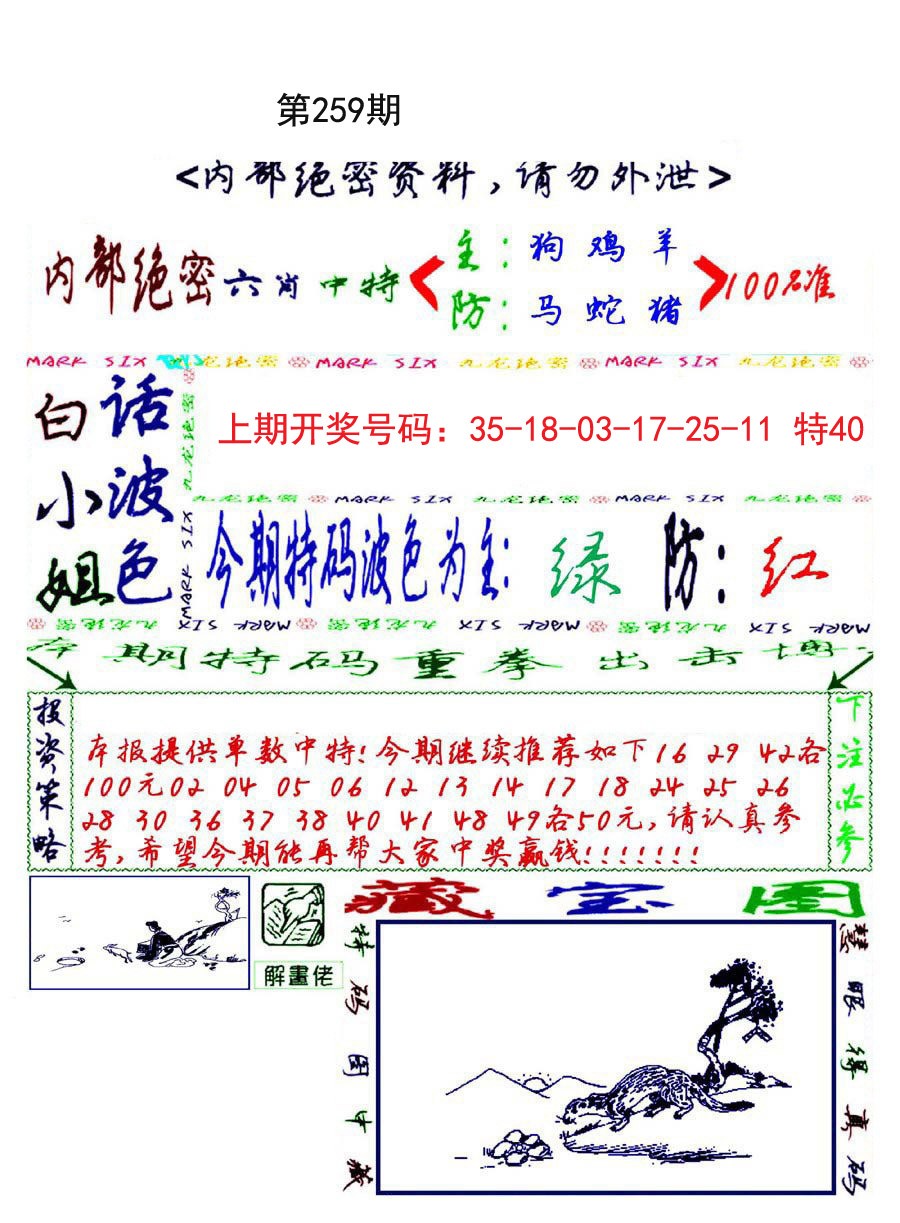 第259期
<内部绝密资料,请勿外泄>
内部绝密六肖中特
主:狗鸡羊
防:马蛇猪
100%准
MARK SIX 九龙绝密 MARK SIX 九龙绝密 MARK SIX 九龙绝密
白话
小波
姐色
九龙绝密
MARK SIX
上期开奖号码：35-18-03-17-25-11 特40
九龙绝密 MARK SIX 九龙绝密 MARK SIX 九龙绝密
今期特码波色为主:绿 防:红
九龙绝密 MARK SIX 九龙绝密 MARK SIX 九龙绝密 MARK SIX
本期特码重拳出击博
投资策略
本报提供单数中特!今期继续推荐如下16 29 42各
100元02 04 05 06 12 13 14 17 18 24 25 26
28 30 36 37 38 40 41 48 49各50元,请认真参
考,希望今期能再帮大家中奖赢钱!!!!!!!
下注必参
解畫佬
藏宝图
特码图中藏
慧眼得真码